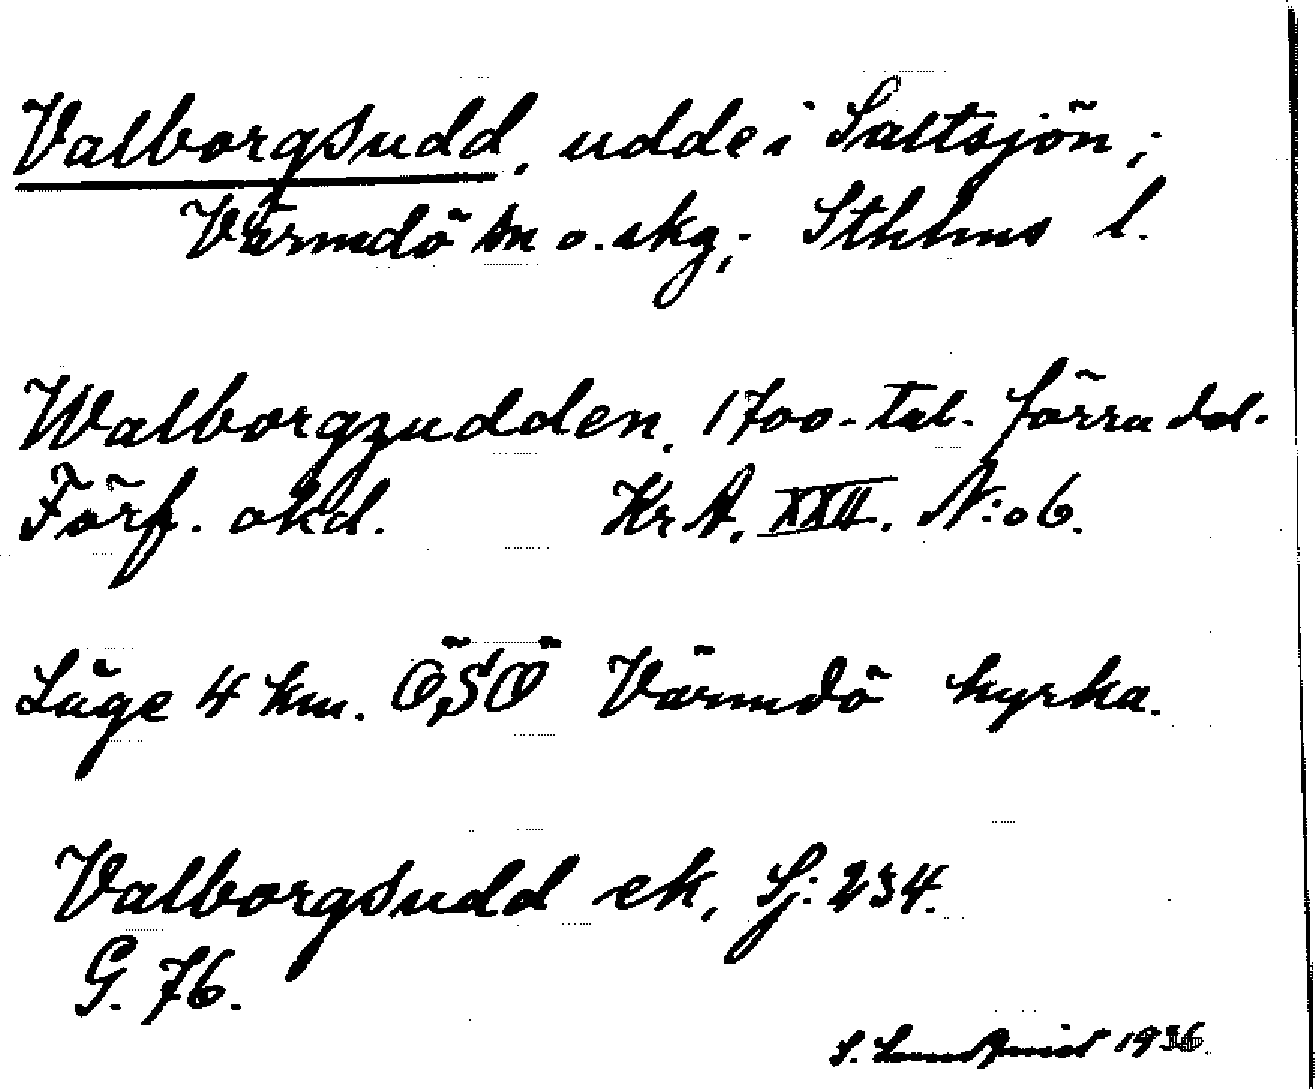 Valborgsudd, udde i Saltsjön,;
Värmdö sn o. skg,; Sthlms l.
Walborgzudden. 1700-tal. förra del.
Förf. okd. Kr A. XXII. N:o 6.
Läge 4 km. ÖSÖ Värmdö kyrka.
Valborgsudd ek, Sj: 234.
G. 76.
S. Lundqvist 1936